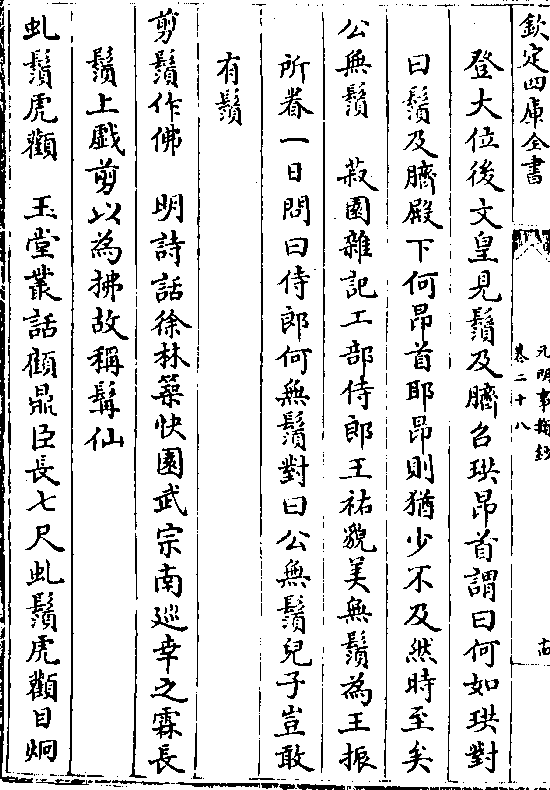 欽定四庫全書
元明事類鈔
卷二十八
古
登大位後文皇見鬚及臍召珙昂首謂曰何如珙對
曰鬚及臍殿下何昂首耶昂則猶少不及然時至矣
公無鬚　菽園雜記工部侍郎王祐貌美無鬚為王振
所眷一日問曰侍郎何無鬚對曰公無鬚兒子豈敢
有鬚
剪鬚作佛　明詩話徐林築快園武宗南巡幸之霖長
鬚上戲剪以為拂故稱髯仙
虬鬚虎顴　玉堂叢話顧鼎臣長七尺虬鬚虎顴目炯